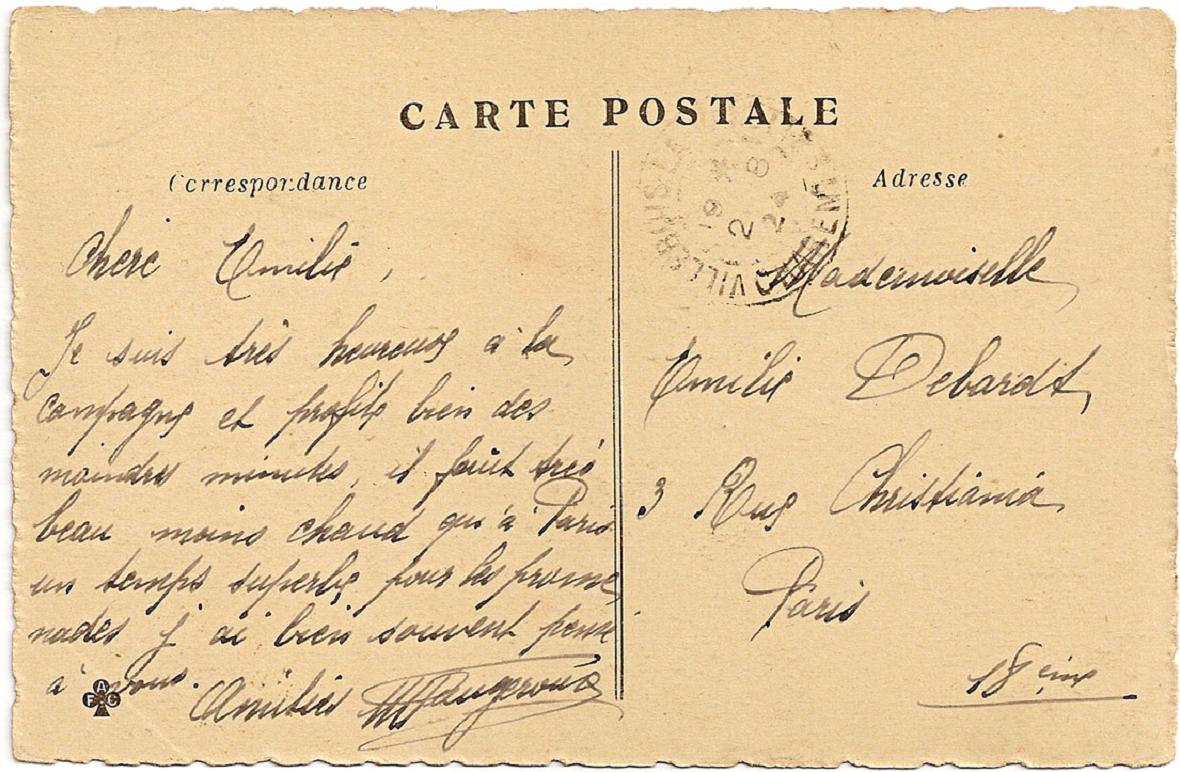 CARTE POSTALE
Correspondance
Adresse
Chere Emilie,
Je suis très heureuse a la
campagne et profite bien des
moindres minutes, il fait très
beau moins chaud qu'à Paris
un temps superbe pour les prome
nades j'ai bien souvent pensé
à vous.
Amitiés
AFC
Mademoiselle
Emilie Debardt,
3 Rue Christiania
Paris
18 eme
19
2 8
24